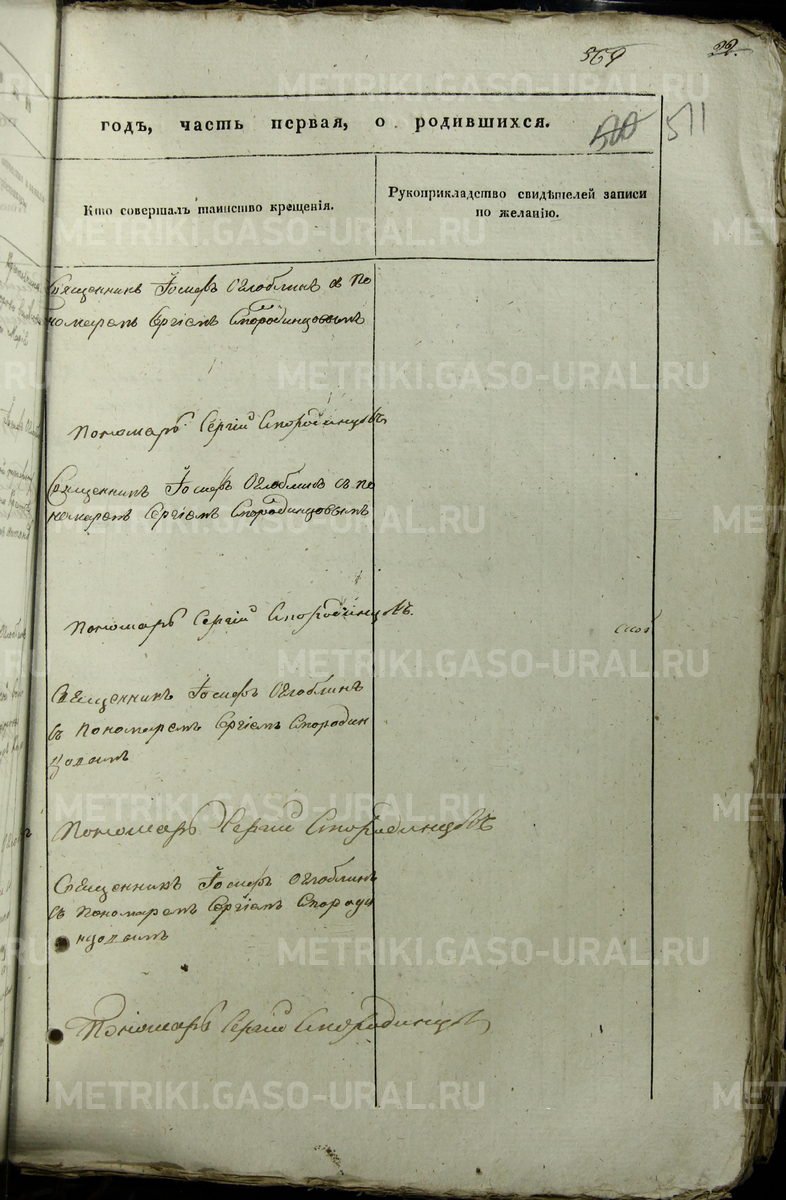 569 22.
годъ, часть первая, о родившихся. 511
Кто совершалъ таинство крещенія.
Рукоприкладство свидѣтелей записи
по желанію.
Священникъ Іосифъ Оглоблинъ съ по
номаремъ Сергіемъ Смородинцовымъ
пономарь Сергій Смородинцовъ
Священникъ Іосифъ Оглоблинъ съ по
номаремъ Сергіемъ Смородинцовымъ
пономарь Сергій Смородинцовъ.
Священникъ Іосифъ Оглоблинъ
съ пономаремъ Сергіемъ Смородин
цовымъ
пономарь Сергій Смородинцовъ
Священникъ Іосифъ Оглоблинъ
съ пономаремъ Сергіемъ Смороди
нцовымъ
Пономарь Сергій Смородинцовъ
METRIKI.GASO-URAL.RU